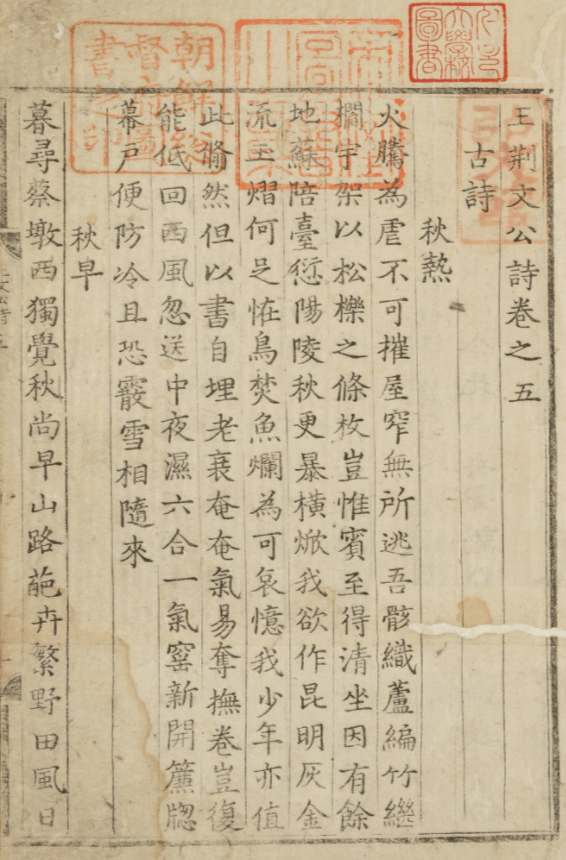 서울大學校圖書
朝鮮總督府圖書之印
王荊文公詩卷之五
古詩
秋熱
火騰為虐不可摧屋窄無所逃吾骸織蘆編竹繼
欄宇架以松櫟之條枚豈惟賓至得清坐因有餘
地蘇陪臺愆陽陵秋更暴橫焮我欲作昆明灰金
流玉熠何足怪鳥焚魚爛為可哀憶我少年亦值
此翛然但以書自埋老衰奄奄氣易奪撫卷豈復
能低回西風忽送中夜濕六合一氣窰新開簾牎
幕戶便防冷且恐霰雪相隨來
秋早
暮尋蔡墩西獨覺秋尚早山路葩卉繁野田風日